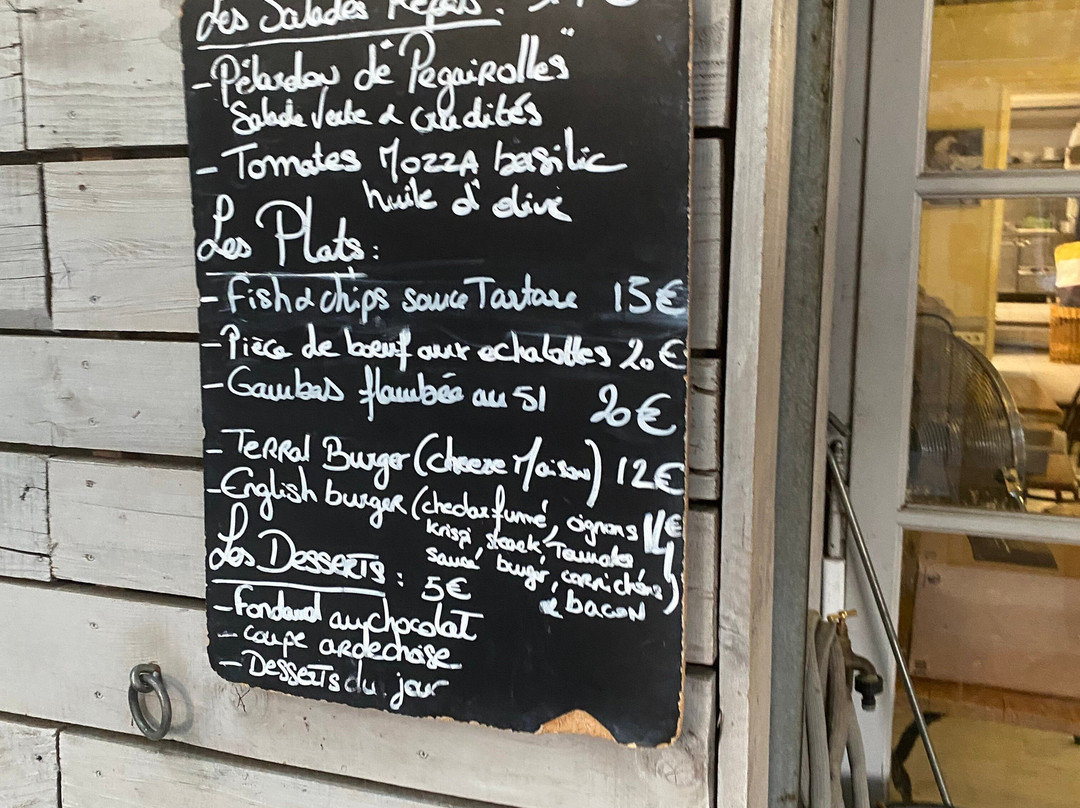 Les Salades Repas :
- Pélardon de "Pegairolles"
Salade verte & crudités
- Tomates Mozza basilic
huile d'olive
Les Plats :
- Fish & chips sauce Tartare 15€
- Pièce de bœuf aux echalottes 20€
- Gambas flambée au 51 20€
- Terral Burger (cheese Maison) 12€
- English burger (chedar fumé, oignons 14€
krispi, steack, Tomates,
sauce burger, cornichons)
& bacon
Les Desserts : 5€
- Fondant au chocolat
- coupe ardechoise
- Desserts du jour